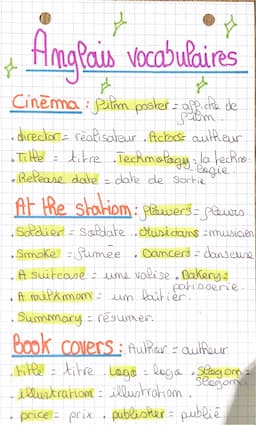 Anglais vocabulaires
Cinéma : film poster = affiche de
film
. director = réalisateur . Actors = autheur
. Title = titre . Technology = la techno-
logie
. Release date = date de sortie
At the station : flowers = fleurs
. Soldier = soldate . Musicians = musicien
. Smoke = fumée . Dancers = danseuse
. A suitcase = une valise . Bakery =
patisserie
. A milkman = un laitier
. Summary = résumer
Book covers : Author = autheur
. title = titre . Logo = logo . Slogan =
Slogan
. illustration = illustration .
. price = prix . publisher = publié